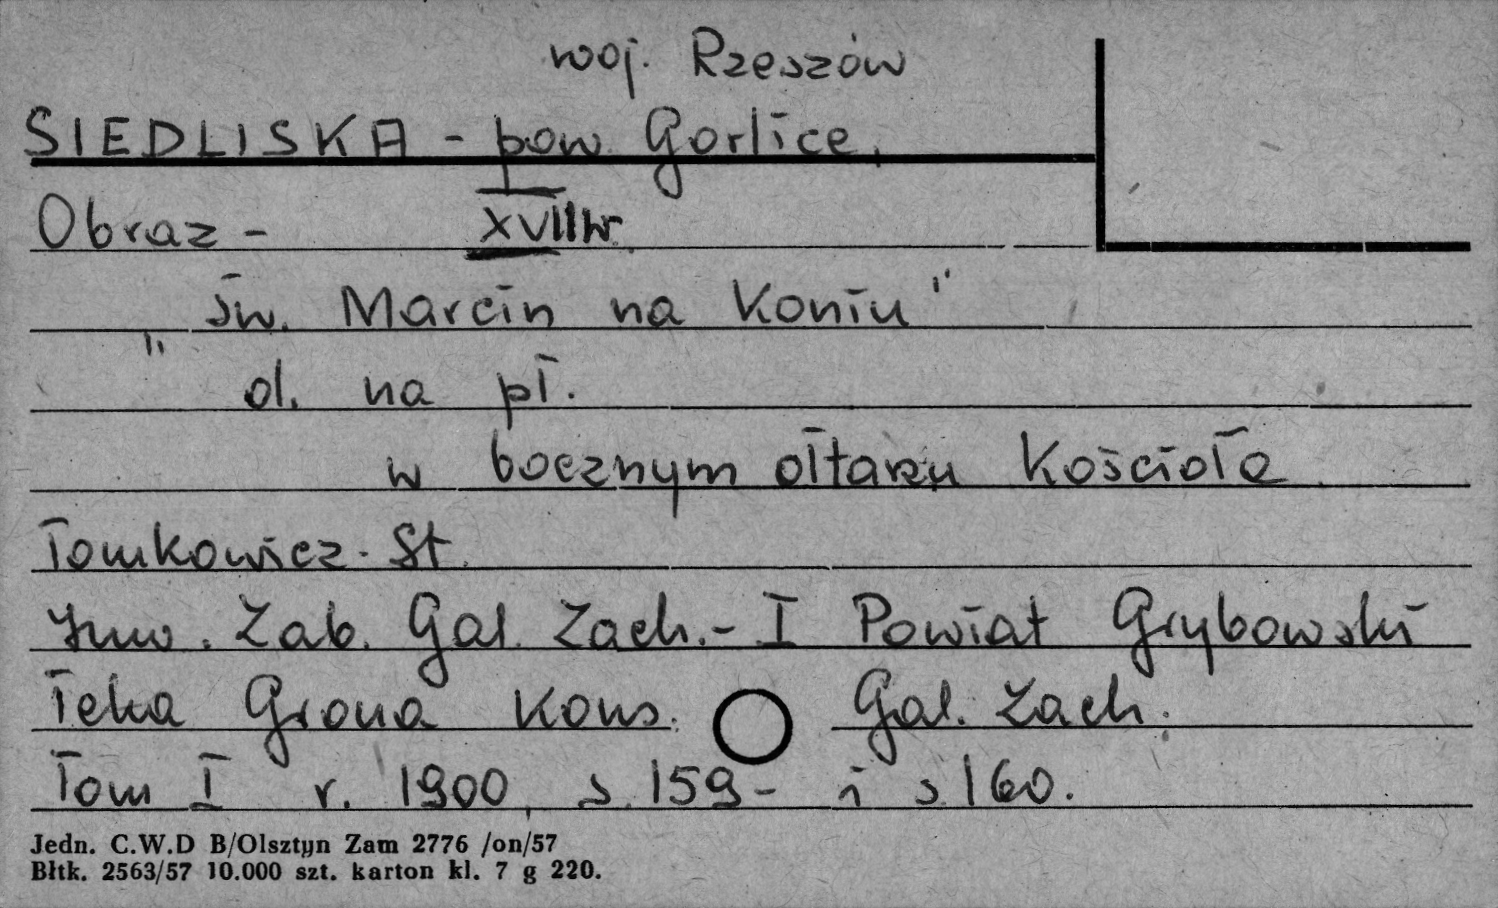 woj. Rzeszów
SIEDLISKA - pow Gorlice.
Obraz - XVIIw.
„św. Marcin na Koniu"
ol. na pł.
w bocznym ołtarzu Kościoła
Tomkowicz. St.
Inw. Zab. Gal. Zach. - I Powiat Grybowski
Teka Grona Kons. Gal. Zach.
Tom I r. 1900, s. 159 - i s 160.
Jedn. C.W.D B/Olsztyn Zam 2776 /on/57
Błtk. 2563/57 10.000 szt. karton kl. 7 g 220.